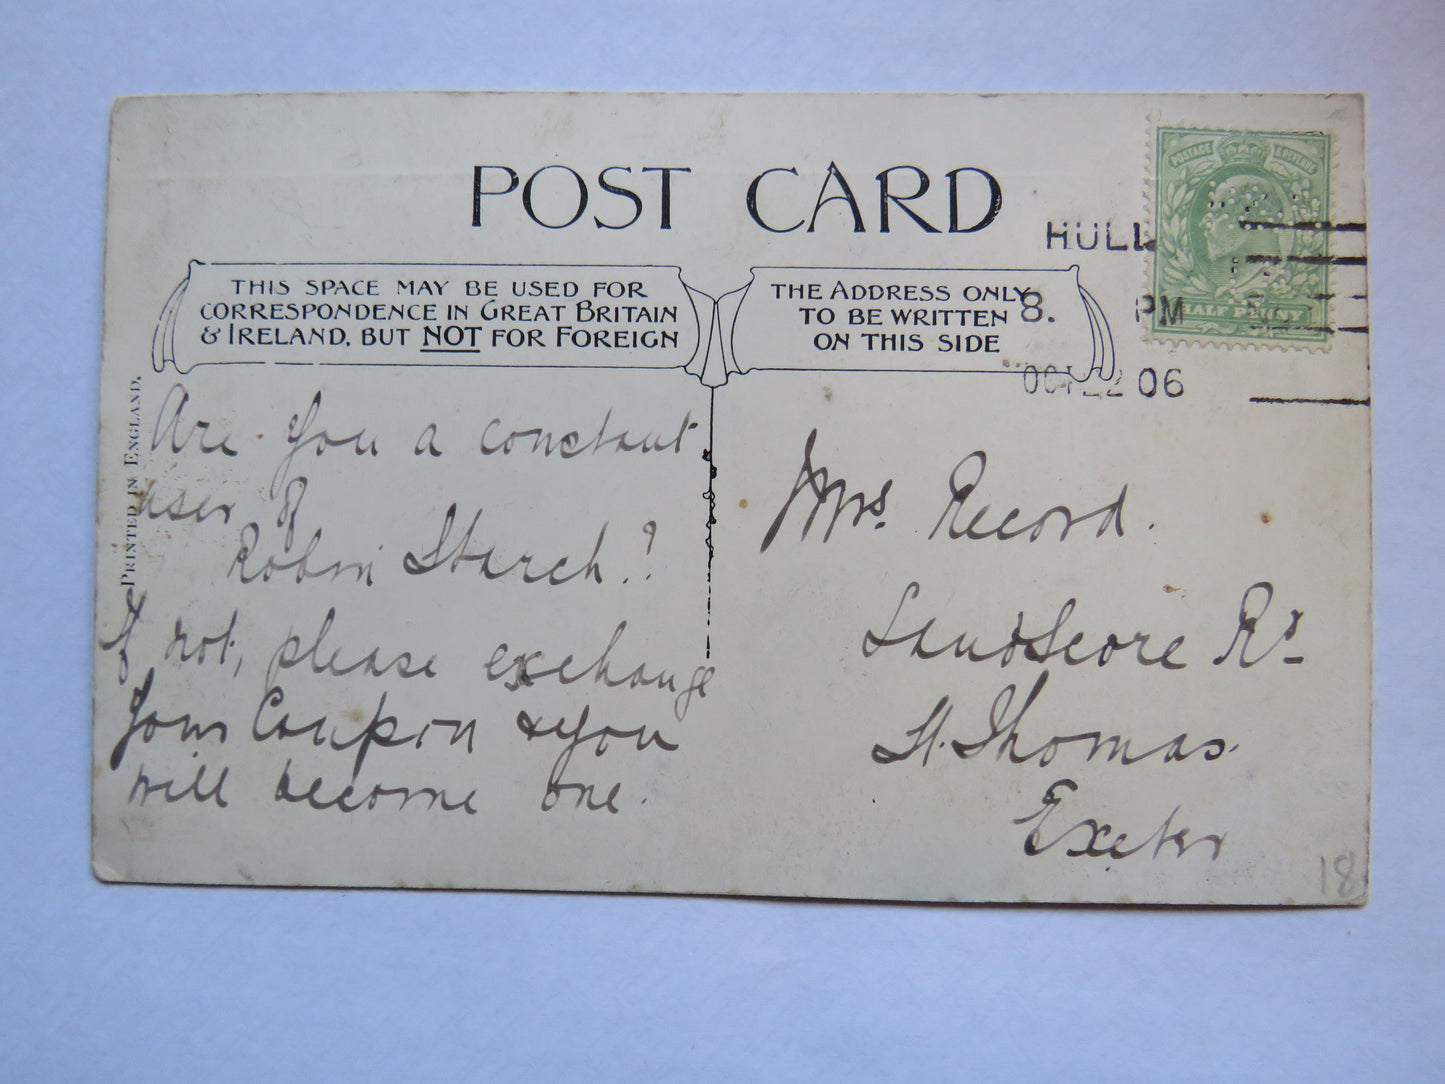 POST CARD
HULL
8. PM
OCT 22 06
POSTAGE & REVENUE
HALF PENNY
THIS SPACE MAY BE USED FOR
CORRESPONDENCE IN GREAT BRITAIN
& IRELAND, BUT NOT FOR FOREIGN
THE ADDRESS ONLY
TO BE WRITTEN
ON THIS SIDE
PRINTED IN ENGLAND.
Are you a constant
user of
Robin Starch?
If not, please exchange
your Coupon & you
will become one.
Mrs. Record.
Landscore Rd
St. Thomas.
Exeter
18